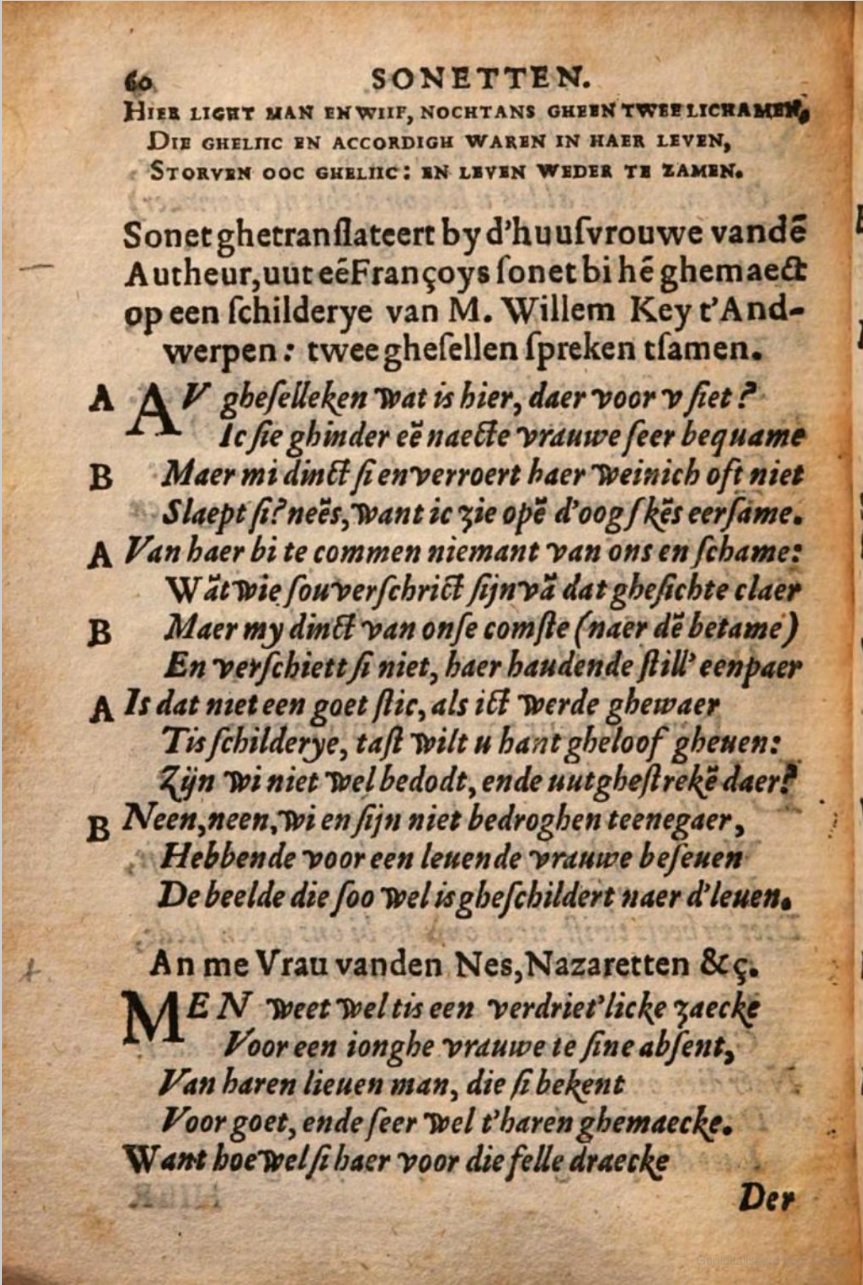 60 SONETTEN.
HIER LIGHT MAN EN WIIF, NOCHTANS GHEEN TWEE LICHAMEN,
DIE GHELIIC EN ACCORDIGH WAREN IN HAER LEVEN,
STORVEN OOC GHELIIC: EN LEVEN WEDER TE ZAMEN.
Sonet ghetranſlateert by d'huuſvrouwe vandē
Autheur, uut eē Françoys ſonet bi hē ghemaect
op een ſchilderye van M. Willem Key t'And-
werpen: twee gheſellen ſpreken tſamen.
A AV gheſelleken wat is hier, daer voor v ſiet?
Ic ſie ghinder eē naecte vrauwe ſeer bequame
B Maer mi dinct ſi en verroert haer weinich oft niet
Slaept ſi? neēs, want ic zie opē d'oogſkēs eerſame.
A Van haer bi te commen niemant van ons en ſchame:
Wāt wie ſou verſchrict ſijn vā dat gheſichte claer
B Maer my dinct van onſe comſte (naer dē betame)
En verſchiett ſi niet, haer haudende ſtill' eenpaer
A Is dat niet een goet ſtic, als ict werde ghewaer
Tis ſchilderye, taſt wilt u hant gheloof gheuen:
Zijn wi niet wel bedodt, ende uutgheſtrekē daer?
B Neen, neen, wi en ſijn niet bedroghen teenegaer,
Hebbende voor een leuende vrauwe beſeuen
De beelde die ſoo wel is gheſchildert naer d'leuen.
An me Vrau vanden Nes, Nazaretten &ç.
MEN weet wel tis een verdriet'licke zaecke
Voor een ionghe vrauwe te ſine abſent,
Van haren lieuen man, die ſi bekent
Voor goet, ende ſeer wel t'haren ghemaecke.
Want hoewel ſi haer voor die felle draecke
Der